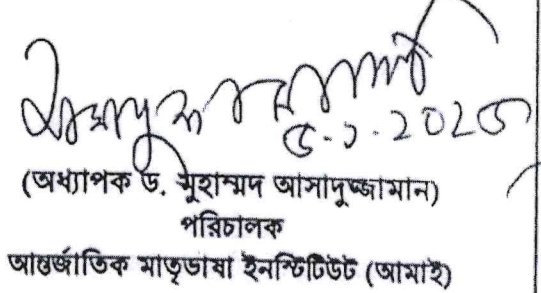 আসাদুজ্জামান
৫.১.২০২৫
(অধ্যাপক ড. মুহাম্মদ আসাদুজ্জামান)
পরিচালক
আন্তর্জাতিক মাতৃভাষা ইনস্টিটিউট (আমাই)